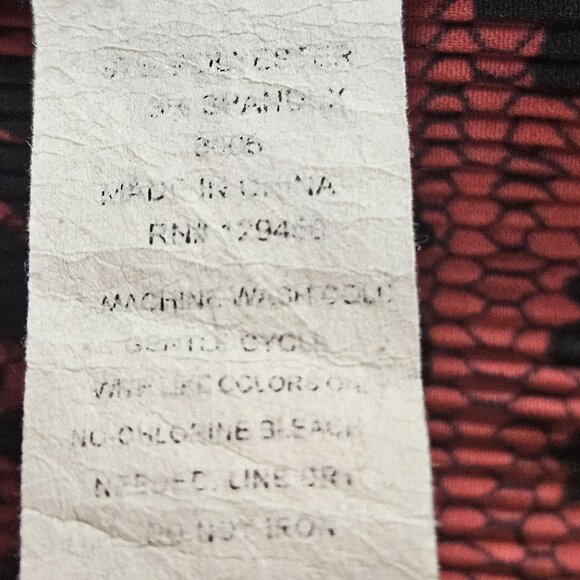 POLYESTER
SPANDEX
MADE IN CHINA
RN#
MACHINE WASH COLD
GENTLE CYCLE
WITH LIKE COLORS
NO CHLORINE BLEACH
NEEDED. LINE DRY
DO NOT IRON